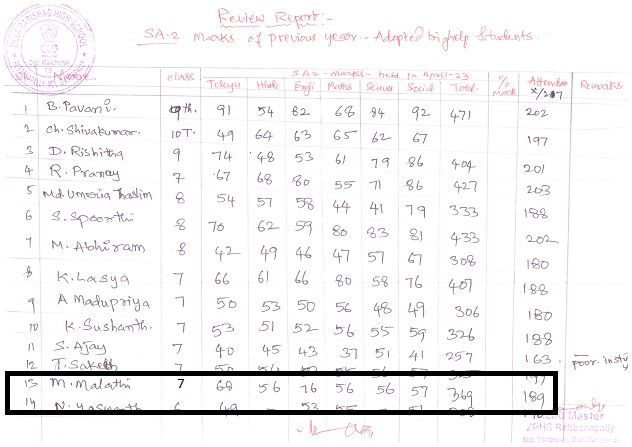 Review Report:-
SA-2 Marks of previous year - Adopted bighelp Students.
ZILLA PARISHAD HIGH SCHOOL
Name class SA2 - Marks - held in April-23 % Attendan Remarks
Telugu Hindi Engli Maths Science Social Total. x/207
1 B. Pavani. 91 54 82 68 84 92 471 202
2 Ch. Shivakumar. 10T. 49 64 63 65 62 67 197
3 D. Rishitha 9 74 48 53 61 79 86 404 201
4 R. Pranay 7 67 68 80 55 71 86 427 203
5 Md. Thaslim 8 54 57 58 44 41 79 333 188
6 S. Spoorthi 8 70 62 59 80 83 81 433 202
7 M. Abhiram 8 42 49 46 47 57 67 308 180
8 K. Lasya 7 66 61 66 80 58 76 407 188
9 A Madupriya 7 50 53 50 56 48 49 306 180
10 K. Sushanth. 7 53 51 52 56 55 59 326 188
11 S. Ajay 7 40 45 43 37 51 41 257 163 poor
12 T. Saketh 7
13 M. Malathi 7 68 56 76 56 56 57 369 189
14 N. Yaswanth
Master
ZPHS Rebbanapally